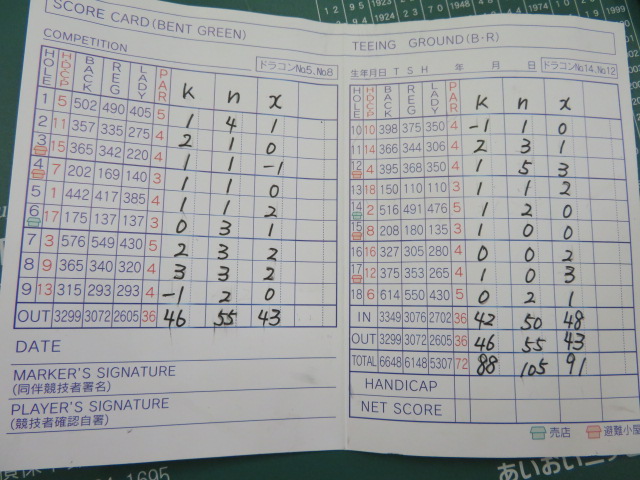 SCORE CARD (BENT GREEN)
COMPETITION
ドラコンNo5.No8
HOLE HDCP BACK REG LADY PAR K n x
1 5 502 490 405 5 1 4 1
2 11 357 335 275 4 2 1 0
3 15 365 342 220 4 1 1 -1
4 7 202 169 140 3 1 1 0
5 1 442 417 385 4 1 1 2
6 17 175 137 137 3 0 3 1
7 3 576 549 430 5 2 3 2
8 9 365 340 320 4 3 3 2
9 13 315 293 293 4 -1 2 0
OUT 3299 3072 2605 36 46 55 43
DATE
MARKER'S SIGNATURE
(同伴競技者署名)
PLAYER'S SIGNATURE
(競技者確認自署)
TEEING GROUND (B・R)
生年月日 T S H 年 月 日 ドラコンNo14.No12
HOLE HDCP BACK REG LADY PAR K n x
10 10 398 375 350 4 -1 1 0
11 14 366 344 306 4 2 3 1
12 4 395 368 350 4 1 5 3
13 18 150 110 110 3 1 1 2
14 2 516 491 476 5 1 2 0
15 8 208 180 135 3 1 0 0
16 16 327 305 280 4 0 0 2
17 12 375 353 265 4 1 0 3
18 6 614 550 430 5 0 2 1
IN 3349 3076 2702 36 42 50 48
OUT 3299 3072 2605 36 46 55 43
TOTAL 6648 6148 5307 72 88 105 91
HANDICAP
NET SCORE
売店 避難小屋
1695
あいおいニッ